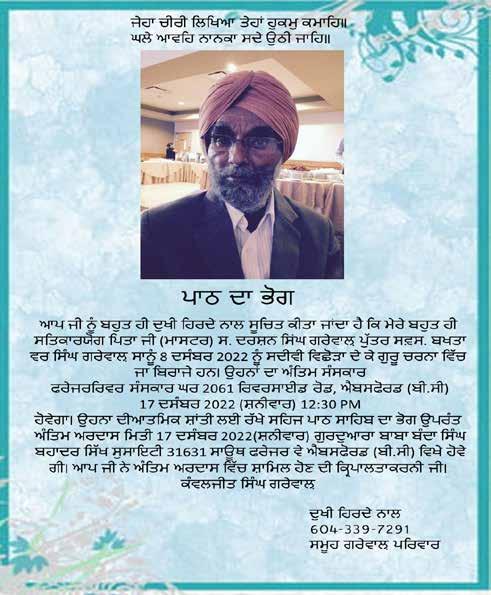 ਜੇਹਾ ਚੀਰੀ ਲਿਖਿਆ ਤੇਹਾਂ ਹੁਕਮੁ ਕਮਾਹਿ॥
ਘਲੇ ਆਵਹਿ ਨਾਨਕਾ ਸਦੇ ਉਠੀ ਜਾਹਿ॥
ਪਾਠ ਦਾ ਭੋਗ
ਆਪ ਜੀ ਨੂੰ ਬਹੁਤ ਹੀ ਦੁਖੀ ਹਿਰਦੇ ਨਾਲ ਸੂਚਿਤ ਕੀਤਾ ਜਾਂਦਾ ਹੈ ਕਿ ਮੇਰੇ ਬਹੁਤ ਹੀ
ਸਤਿਕਾਰਯੋਗ ਪਿਤਾ ਜੀ (ਮਾਸਟਰ) ਸ. ਦਰਸ਼ਨ ਸਿੰਘ ਗਰੇਵਾਲ ਪੁੱਤਰ ਸਵਸ. ਬਖਤਾ
ਵਰ ਸਿੰਘ ਗਰੇਵਾਲ ਸਾਨੂੰ 8 ਦਸੰਬਰ 2022 ਨੂੰ ਸਦੀਵੀ ਵਿਛੋੜਾ ਦੇ ਕੇ ਗੁਰੂ ਚਰਨਾ ਵਿੱਚ
ਜਾ ਬਿਰਾਜੇ ਹਨ। ਉਹਨਾਂ ਦਾ ਅੰਤਿਮ ਸੰਸਕਾਰ
ਫਰੇਜਰਰਿਵਰ ਸੰਸਕਾਰ ਘਰ 2061 ਰਿਵਰਸਾਈਡ ਰੋਡ, ਐਬਸਟੋਰਡ (ਬੀ.ਸੀ)
17 ਦਸੰਬਰ 2022 (ਸ਼ਨੀਵਾਰ) 12:30 PM
ਹੋਵੇਗਾ। ਉਹਨਾ ਦੀਆਤਮਿਕ ਸ਼ਾਂਤੀ ਲਈ ਰੱਖੇ ਸਹਿਜ ਪਾਠ ਸਾਹਿਬ ਦਾ ਭੋਗ ਉਪਰੰਤ
ਅੰਤਿਮ ਅਰਦਾਸ ਮਿਤੀ 17 ਦਸੰਬਰ 2022(ਸ਼ਨੀਵਾਰ) ਗੁਰਦੁਆਰਾ ਬਾਬਾ ਬੰਦਾ ਸਿੰਘ
ਬਹਾਦਰ ਸਿੱਖ ਸੁਸਾਇਟੀ 31631 ਸਾਊਥ ਫਰੇਜਰ ਵੇ ਐਬਸਫੋਰਡ (ਬੀ.ਸੀ) ਵਿਖੇ ਹੋਵੇ
ਗੀ। ਆਪ ਜੀ ਨੇ ਅੰਤਿਮ ਅਰਦਾਸ ਵਿੱਚ ਸ਼ਾਮਿਲ ਹੋਣ ਦੀ ਕ੍ਰਿਪਾਲਤਾਕਰਨੀ ਜੀ।
ਕੰਵਲਜੀਤ ਸਿੰਘ ਗਰੇਵਾਲ
ਦੁਖੀ ਹਿਰਦੇ ਨਾਲ
604-339-7291
ਸਮੂਹ ਗਰੇਵਾਲ ਪਰਿਵਾਰ